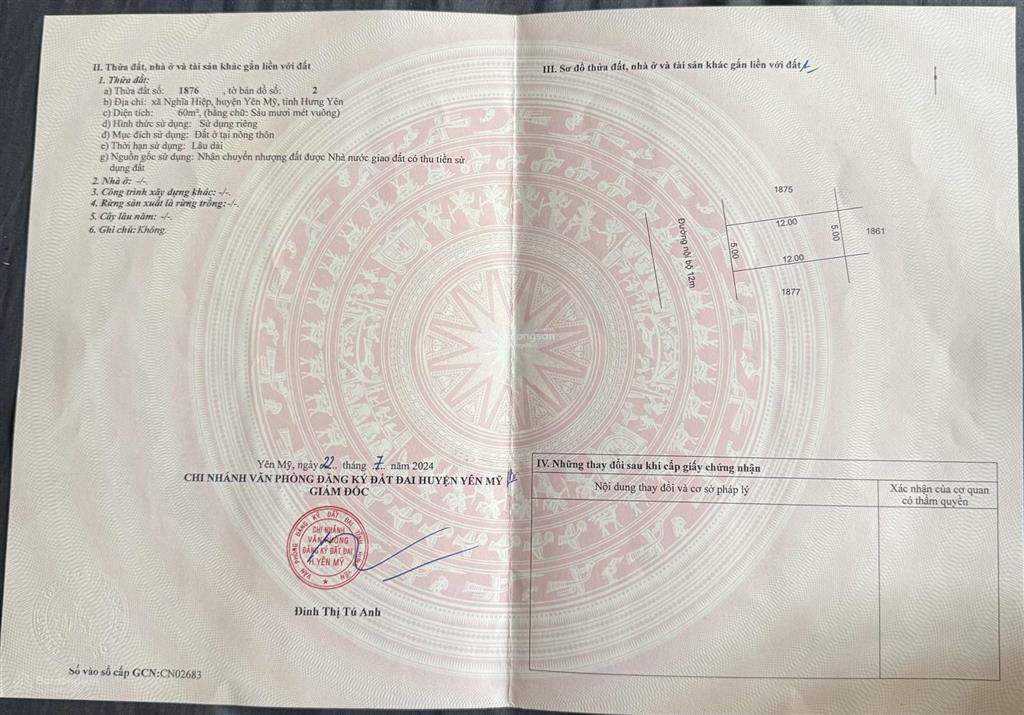 II. Thửa đất, nhà ở và tài sản khác gắn liền với đất
1. Thửa đất:
a) Thửa đất số: 1876 , tờ bản đồ số: 2
b) Địa chỉ: xã Nghĩa Hiệp, huyện Yên Mỹ, tỉnh Hưng Yên
c) Diện tích: 60m², (bằng chữ: Sáu mươi mét vuông)
d) Hình thức sử dụng: Sử dụng riêng
đ) Mục đích sử dụng: Đất ở tại nông thôn
e) Thời hạn sử dụng: Lâu dài
g) Nguồn gốc sử dụng: Nhận chuyển nhượng đất được Nhà nước giao đất có thu tiền sử
dụng đất
2. Nhà ở: -/-.
3. Công trình xây dựng khác: -/-.
4. Rừng sản xuất là rừng trồng:-/-.
5. Cây lâu năm: -/-.
6. Ghi chú: Không.
Yên Mỹ, ngày 22. tháng .7. năm 2024
CHI NHÁNH VĂN PHÒNG ĐĂNG KÝ ĐẤT ĐAI HUYỆN YÊN MỸ
GIÁM ĐỐC
CHI NHÁNH
VĂN PHÒNG
ĐĂNG KÝ ĐẤT ĐAI
H.YÊN MỸ
Đinh Thị Tú Anh
Số vào sổ cấp GCN:CN02683
III. Sơ đồ thửa đất, nhà ở và tài sản khác gắn liền với đất
1875
12.00
5.00
5.00
1861
Đường nội bộ 12m
12.00
1877
IV. Những thay đổi sau khi cấp giấy chứng nhận
Nội dung thay đổi và cơ sở pháp lý
Xác nhận của cơ quan
có thẩm quyền